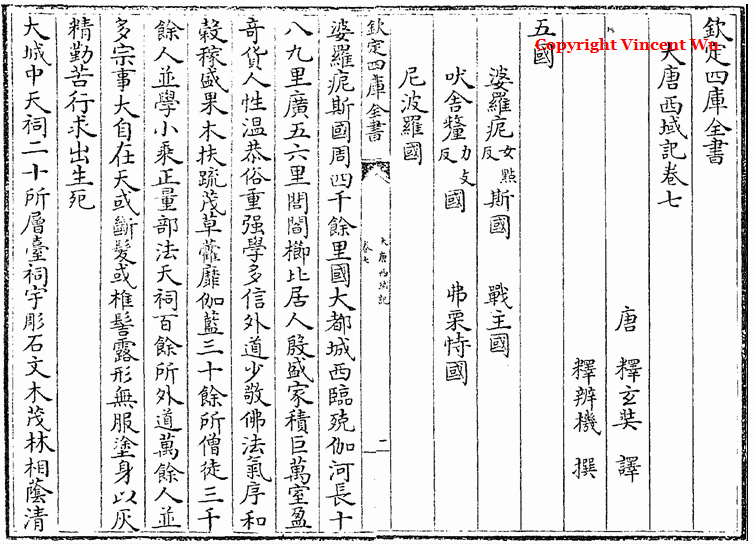 Copyright Vincent Wu
欽定四庫全書
大唐西域記卷七
唐 釋玄奘 譯
釋辨機 撰
五國
婆羅痆女點反斯國 戰主國
吠舍釐力支反國 弗栗恃國
尼波羅國
欽定四庫全書
大唐西域記
卷七
二
婆羅痆斯國周四千餘里國大都城西臨殑伽河長十
八九里廣五六里閭閻櫛比居人殷盛家積巨萬室盈
奇貨人性溫恭俗重强學多信外道少敬佛法氣序和
穀稼盛果木扶疏茂草靃靡伽藍三十餘所僧徒三千
餘人並學小乘正量部法天祠百餘所外道萬餘人並
多宗事大自在天或斷髮或椎髻露形無服塗身以灰
精勤苦行求出生死
大城中天祠二十所層臺祠宇彫石文木茂林相蔭清